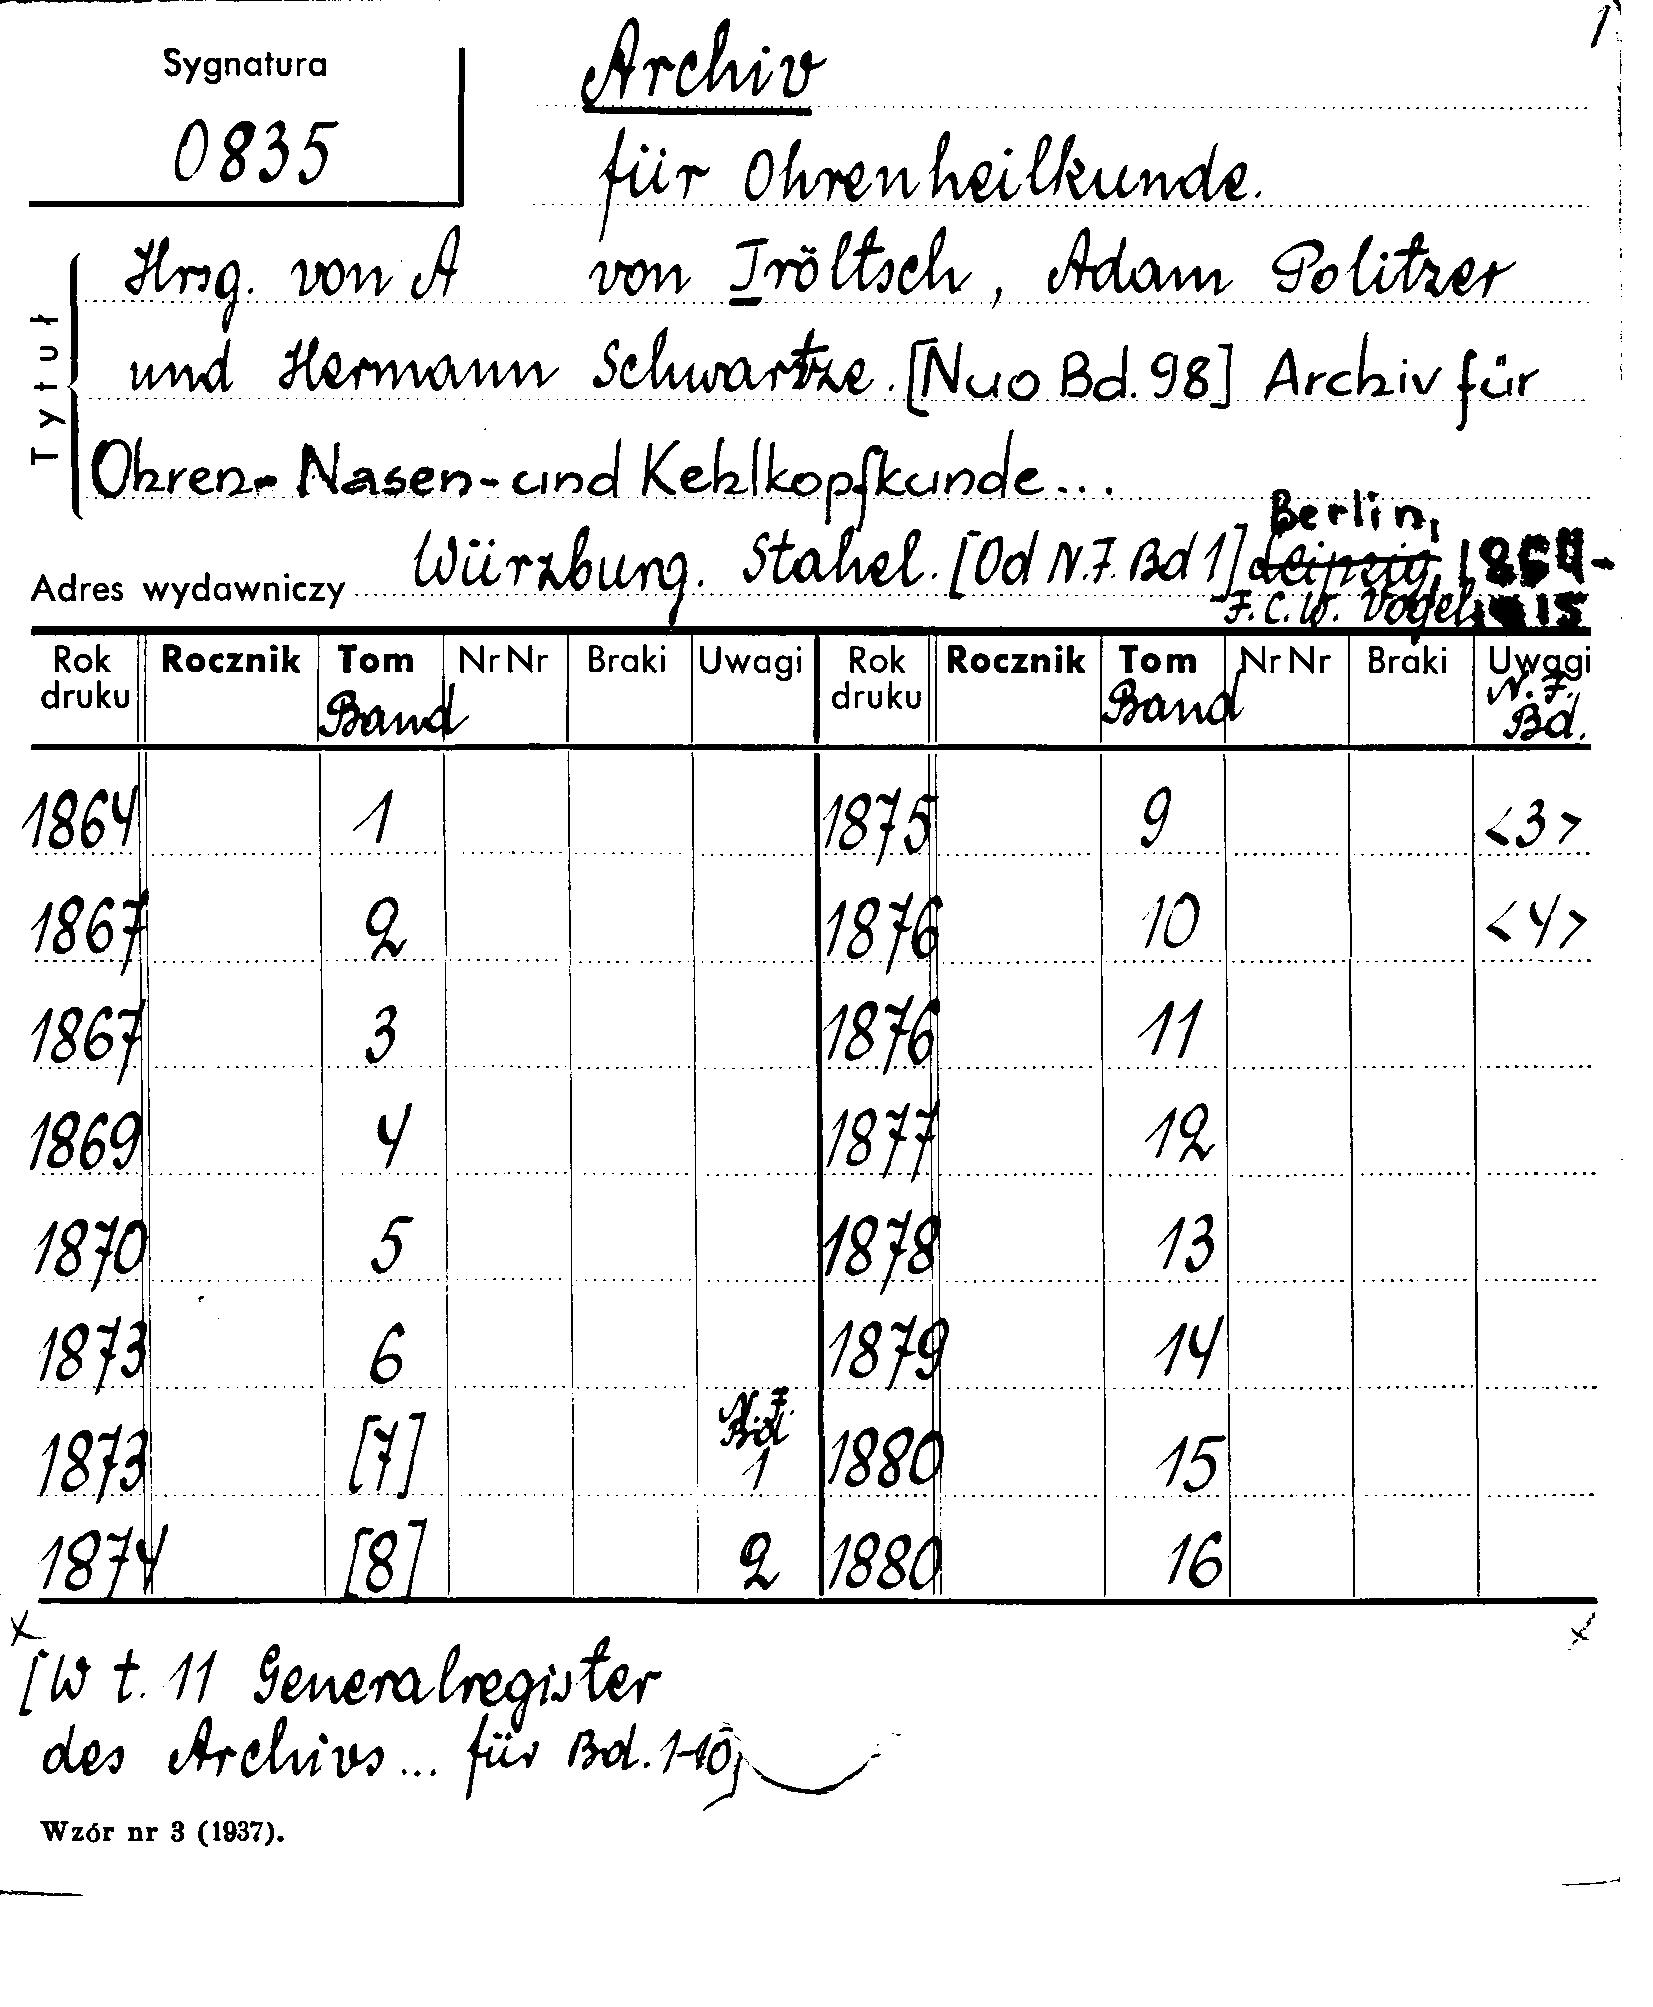 1
Sygnatura
0835
Archiv
für Ohrenheilkunde.
Tytuł
Hrsg. von A von Tröltsch, Adam Politzer
und Hermann Schwartze. [Nuo Bd. 98] Archiv für
Ohren- Nasen- und Kehlkopfkunde...
Berlin,
Adres wydawniczy Würzburg. Stahel. [Od N.F. Bd 1] Leipzig, 1864-
F.C.W. Vogel, 1915
Rok druku Rocznik Tom Band NrNr Braki Uwagi Rok druku Rocznik Tom Band NrNr Braki Uwagi N.F. Bd.
1864 1 1875 9 <3>
1867 2 1876 10 <4>
1867 3 1876 11
1869 4 1877 12
1870 5 1878 13
1873 6 1879 14
1873 [7] N.F. Bd 1 1880 15
1874 [8] 2 1880 16
x x
[W t. 11 Generalregister
des Archivs... für Bd. 1-10]
Wzór nr 3 (1937).